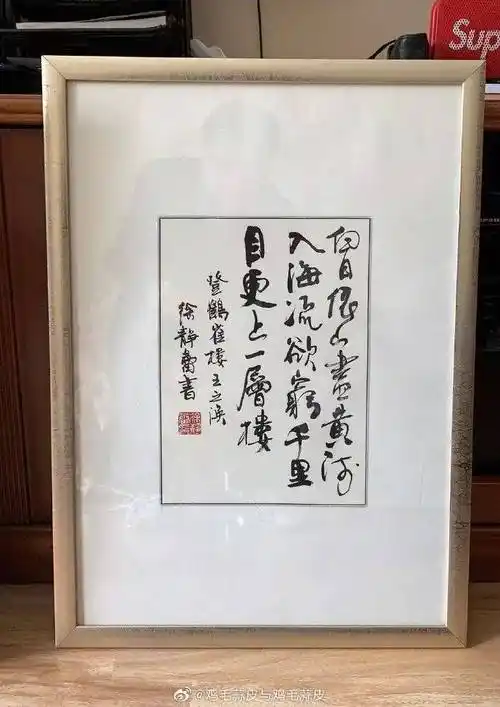 白日依山盡黃河
入海流欲窮千里
目更上一層樓
登鶴雀樓王之渙
徐靜蕾書
Sup
@鸡毛蒜皮与鸡毛蒜皮